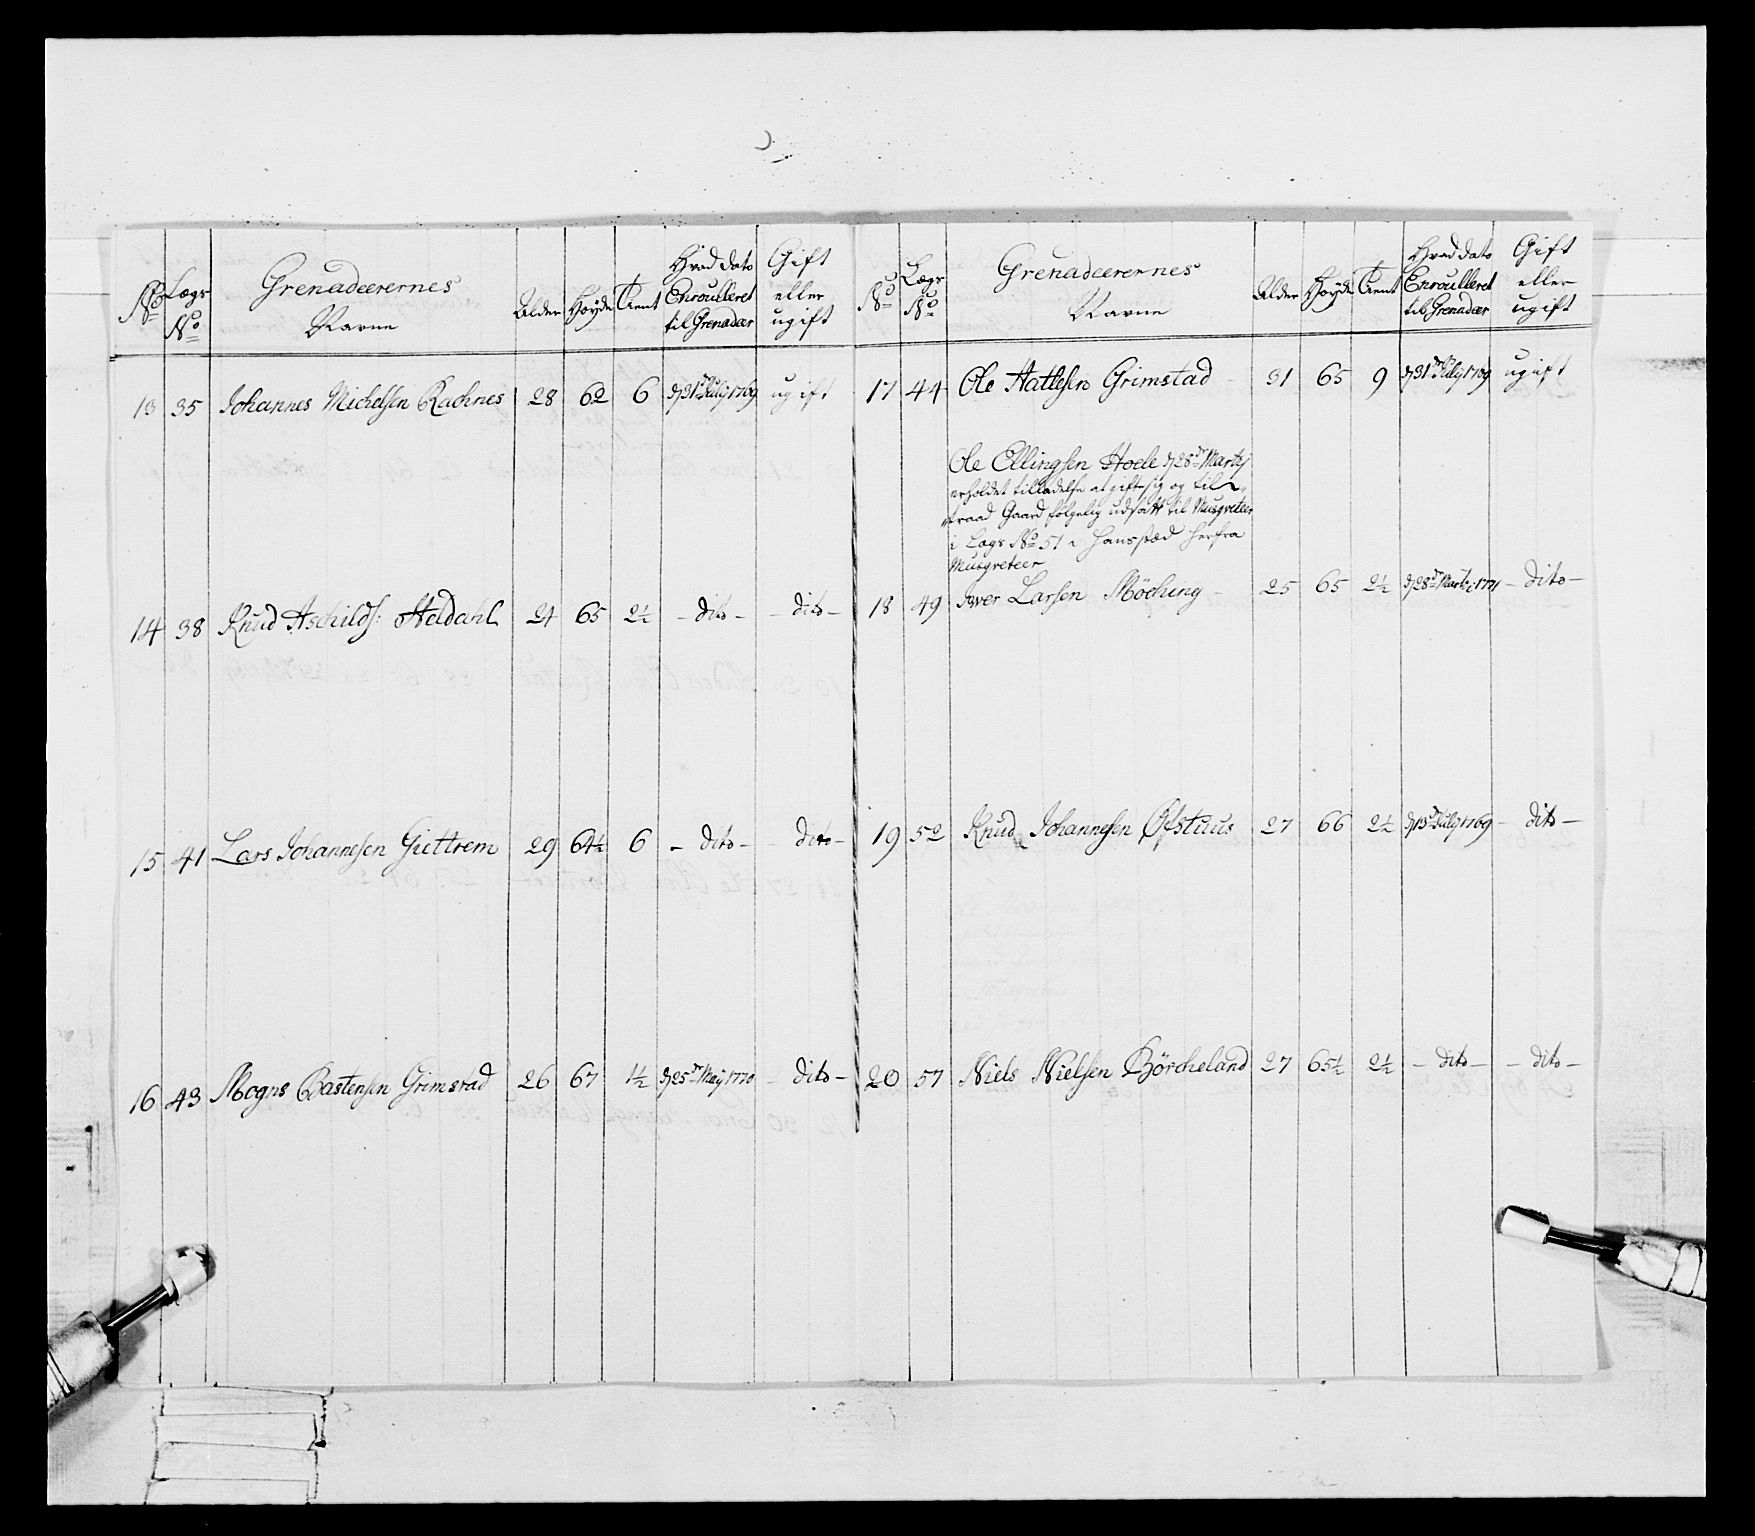 No Lægs No Grenadeerernes Navne Alder Høyde Tient Hvad dato Enroulleret til Grenadeer Gift eller ugift
13 35 Johannes Michelsen Rachnes 28 62 6 d 31t July 1769 ugift
14 38 Knud Aschilds: Heldahl 24 65 2½ - dito - - dito -
15 41 Lars Johannesen Giettrem 29 64½ 6 - dito - - dito -
16 43 Mogns Bastensen Grimstad 26 67 1½ d 25t May 1770 - dito -
No Lægs No Grenadeerernes Navne Alder Høyde Tient Hvad dato Enroulleret til Grenadeer Gift eller ugift
17 44 Ole Hatlesen Grimstad 31 65 9 d 31t July 1769 ugift
Ole Ellingsen Hoele d 28t Martij
erholdet tilladelse at gifte sig og til
traad Gaard følgelig udsatt til Musqveteer
i Lægs No 51 i hans stæd herfra
Musqveteer
18 49 Iver Larsen Möching 25 65 2½ d 28t Martz: 1771 - dito -
19 52 Knud Johannesen Øfstuus 27 66 2½ d 13t July 1769 - dito -
20 57 Niels Nielsen Hörcheland 27 65½ 2½ - dito - - dito -